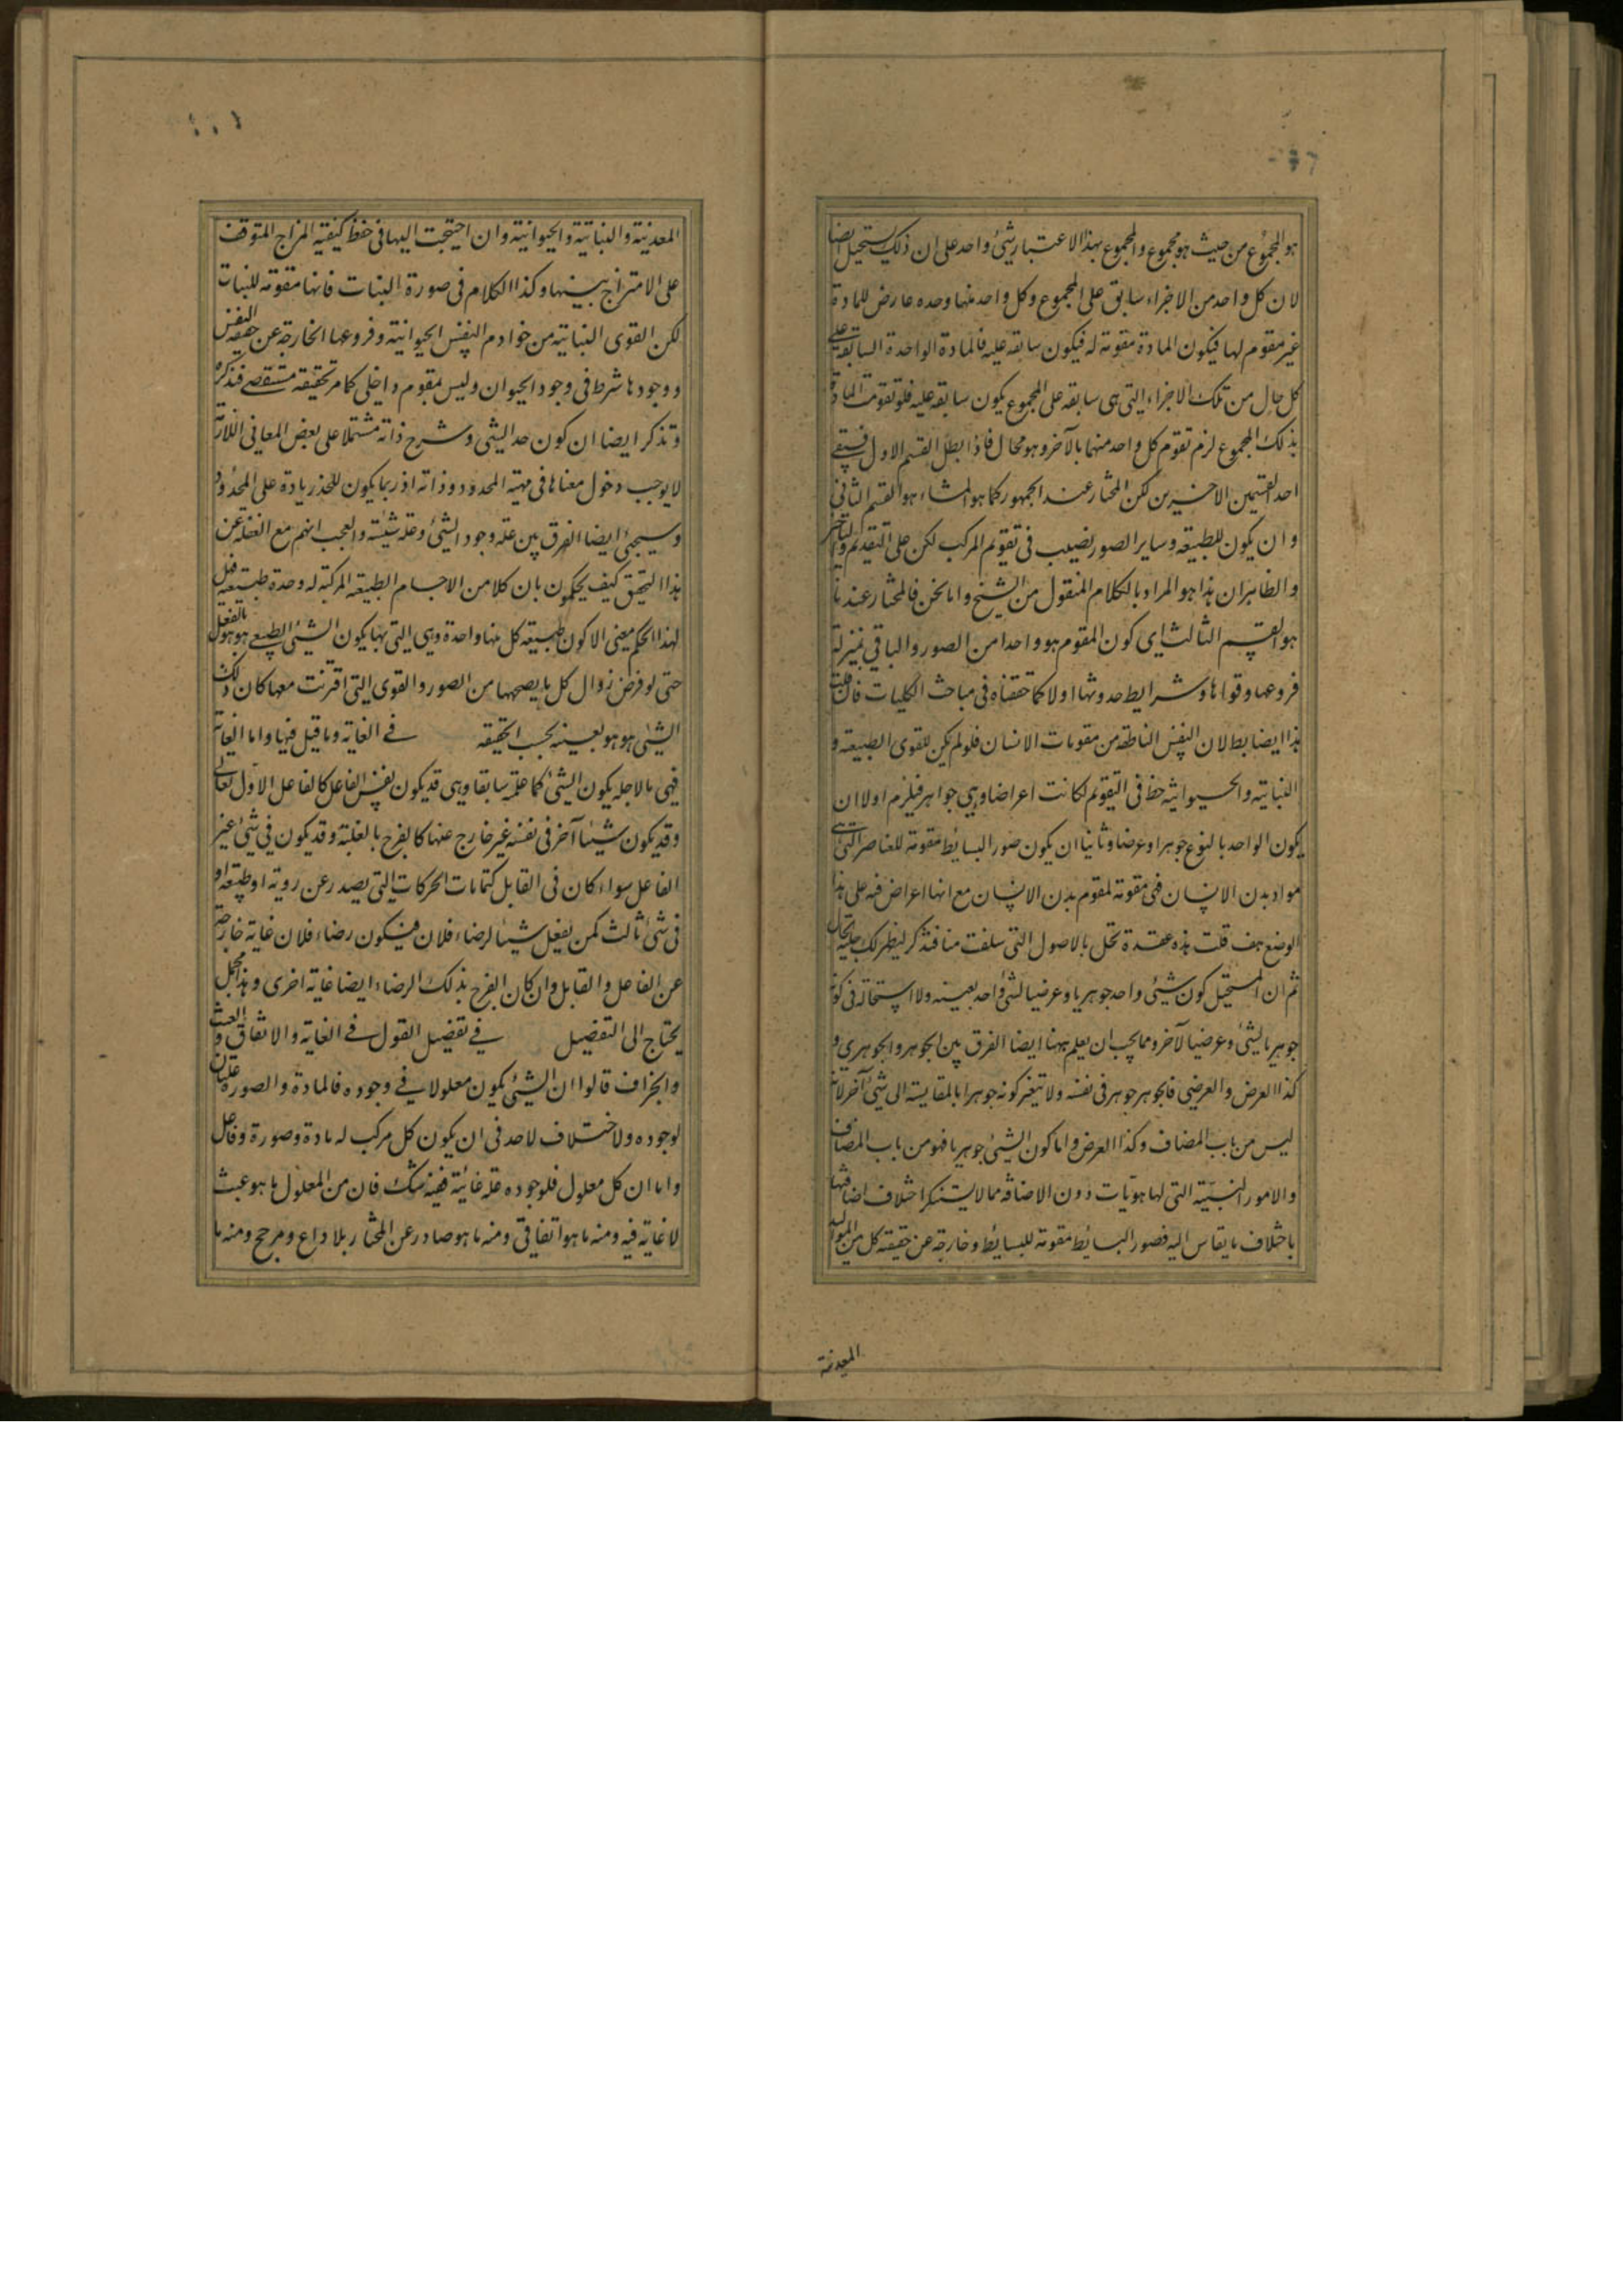 هو المجموع من حيث هو مجموع والمجموع بهذا الاعتبار شئ واحد على ان ذلك يستحيل ايضا
لان كل واحد من الاجزاء سابق على المجموع وكل واحد منها وحده عارض للمادة
غير مقوم لها فيكون المادة مقومة له فيكون سابقه عليه فالمادة الواحدة السابقة على
كل حال من تلك الاجزاء التى هى سابقه على المجموع يكون سابقه عليه فلو تقومت المادة
بذلك المجموع لزم تقوم كل واحد منهما بالآخر وهو محال فاذا بطل القسم الاول فبقى
احد القسمين الاخيرين لكن المختار عند الجمهور كما هو المشاء هو القسم الثانى
وان يكون للطبيعة وساير الصور نصيب فى تقويم المركب لكن على التقديم والتاخير
والظاهر ان هذا هو المراد بالكلام المنقول من الشيخ واما نحن فالمختار عندنا
هو القسم الثالث اى كون المقوم هو واحدا من الصور والباقي بمنزلة
فروعها وقواها وشرايط حدوثها اولا كما حققناه فى مباحث الكليات فان قلت
هذا ايضا بط لان النفس الناطقه من مقومات الانسان فلو لم يكن للقوى الطبيعة و
النباتية والحيوانية حظ فى التقويم لكانت اعراضا وهى جواهر فيلزم اولا ان
يكون الواحد بالنوع جوهرا وعرضا وثانيا ان يكون صور البسائط مقومة للعناصر التى هى
مواد بدن الانسان فهى مقومة لمقوم بدن الانسان مع انها اعراض فيه على هذا
الوضع هف قلت هذه عقدة تحل بالاصول التى سلفت منا فتذكر ليظهر لك جلية الحال
ثم ان المستحيل كون شئى واحد جوهريا وعرضيا لشئ واحد بعينه ولا استحالة فى كونه
جوهريا لشئ وعرضيا لآخر ومما يجب ان يعلم ههنا ايضا الفرق بين الجوهر والجوهري و
كذا العرض والعرضي فالجوهر جوهر فى نفسه ولا يتغير كونه جوهرا بالمقايسة الى شئ آخر لانه
ليس من باب المضاف وكذا العرض واما كون الشئ جوهريا فهو من باب المضاف
والامور النسبية التى لها هويات دون الاضافة مما لا يستنكر اختلاف اضافتها
باختلاف ما يقاس اليه فصور البسائط مقومة للبسائط وخارجة عن حقيقة كل من المواليد
المعدنية
المعدنية والنباتية والحيوانية وان احتيجت اليها فى حفظ كيفية المزاج المتوقف
على الامتزاج بينها وكذا الكلام فى صورة النبات فانها مقومة للنبات
لكن القوى النباتية من خوادم النفس الحيوانية وفروعها الخارجة عن حقيقة النفس
ووجودها شرط فى وجود الحيوان وليس بمقوم داخلى كما مر تحقيقه مستقصى فتذكره
وتذكر ايضا ان كون حد الشئى وشرح ذاته مشتملا على بعض المعانى اللازمة
لا يوجب دخول معناها فى مهية المحدود وذاته اذ ربما يكون للحد زيادة على المحدود
وسيجئ ايضا الفرق بين علة وجود الشئ وعلة شيئيته والعجب انهم مع الغفلة عن
هذا التحقيق كيف يحكمون بان كلا من الاجسام الطبيعة المركبة له وحدة طبيعية فهل
لهذا الحكم معنى الا كون طبيعة كل منها واحدة وهى التى بها يكون الشئ الطبيعى هو هو بالفعل
حتى لو فرض زوال كل ما يصحبها من الصور والقوى التى اقترنت معها كان ذلك
الشئى هو هو بعينه بحسب الحقيقة فى الغاية وما قيل فيها واما الغاية
فهى ما لاجله يكون الشئ كما علمته سابقا وهى قد يكون نفس الفاعل كالفاعل الاول تعالى
وقد يكون شيئا آخر فى نفسه غير خارج عنها كالفرح بالغلبة وقد يكون فى شئ غير
الفاعل سواء كان فى القابل كتمامات الحركات التى يصدر عن روية او طبيعة او
فى شئ ثالث كمن يفعل شيئا لرضاء فلان فيكون رضاء فلان غاية خارجة
عن الفاعل والقابل وان كان الفرح بذلك الرضاء ايضا غاية اخرى وهذا مجمل
يحتاج الى التفصيل فى تفصيل القول فى الغاية والاتفاق والعبث
والجزاف قالوا ان الشئى يكون معلولا فى وجوده فالمادة والصورة علتان
لوجوده ولا ختلاف لاحد فى ان يكون كل مركب له مادة وصورة وفاعل
واما ان كل معلول فلوجوده علة غائية ففيه شك فان من المعلول ما هو عبث
لا غاية فيه ومنه ما هو اتفاقي ومنه ما هو صادر عن المختار بلا داع ومرجح ومنه ما